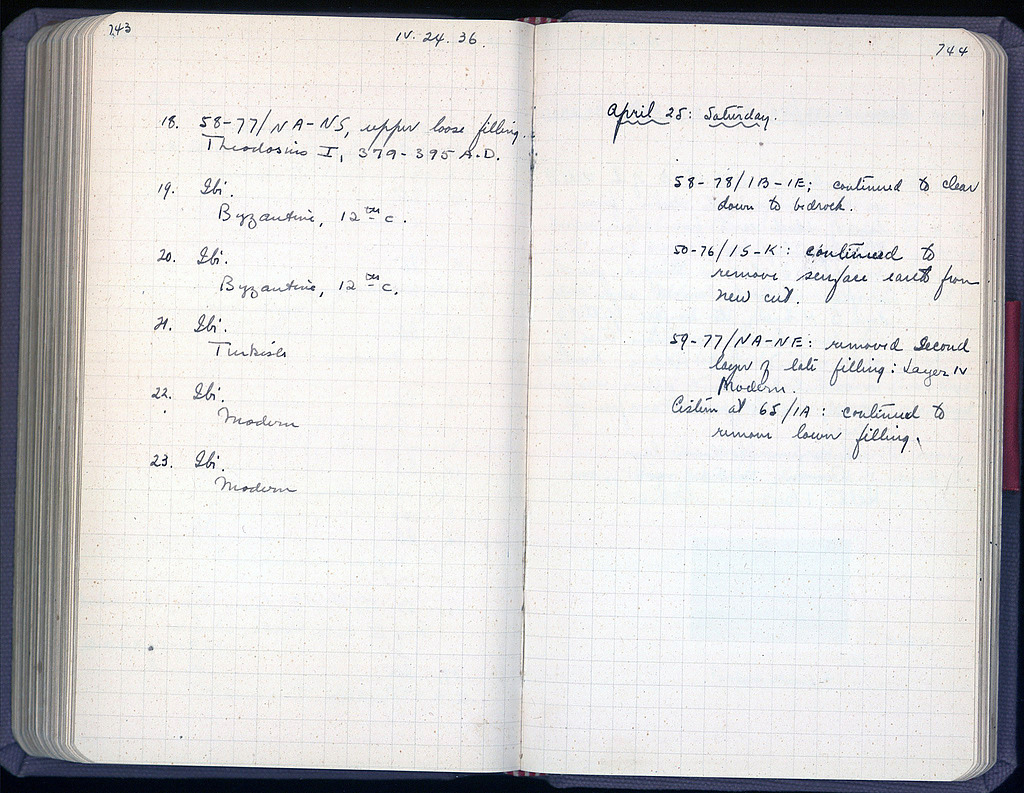 743
IV. 24. 36.
18. 58-77/NA-NS, upper loose filling.
Theodosius I, 379-395 A.D.
19. Ibi.
Byzantine, 12th c.
20. Ibi.
Byzantine, 12th c.
21. Ibi.
Turkish
22. Ibi.
Modern
23. Ibi.
Modern
744
April 25: Saturday.
58-78/IB-IE; continued to clear
down to bedrock.
50-76/IS-K: continued to
remove surface earth from
new cut.
59-77/NA-NE: removed second
layer of late filling: Layer IV
Modern.
Cistern at 65/IA: continued to
remove lower filling.